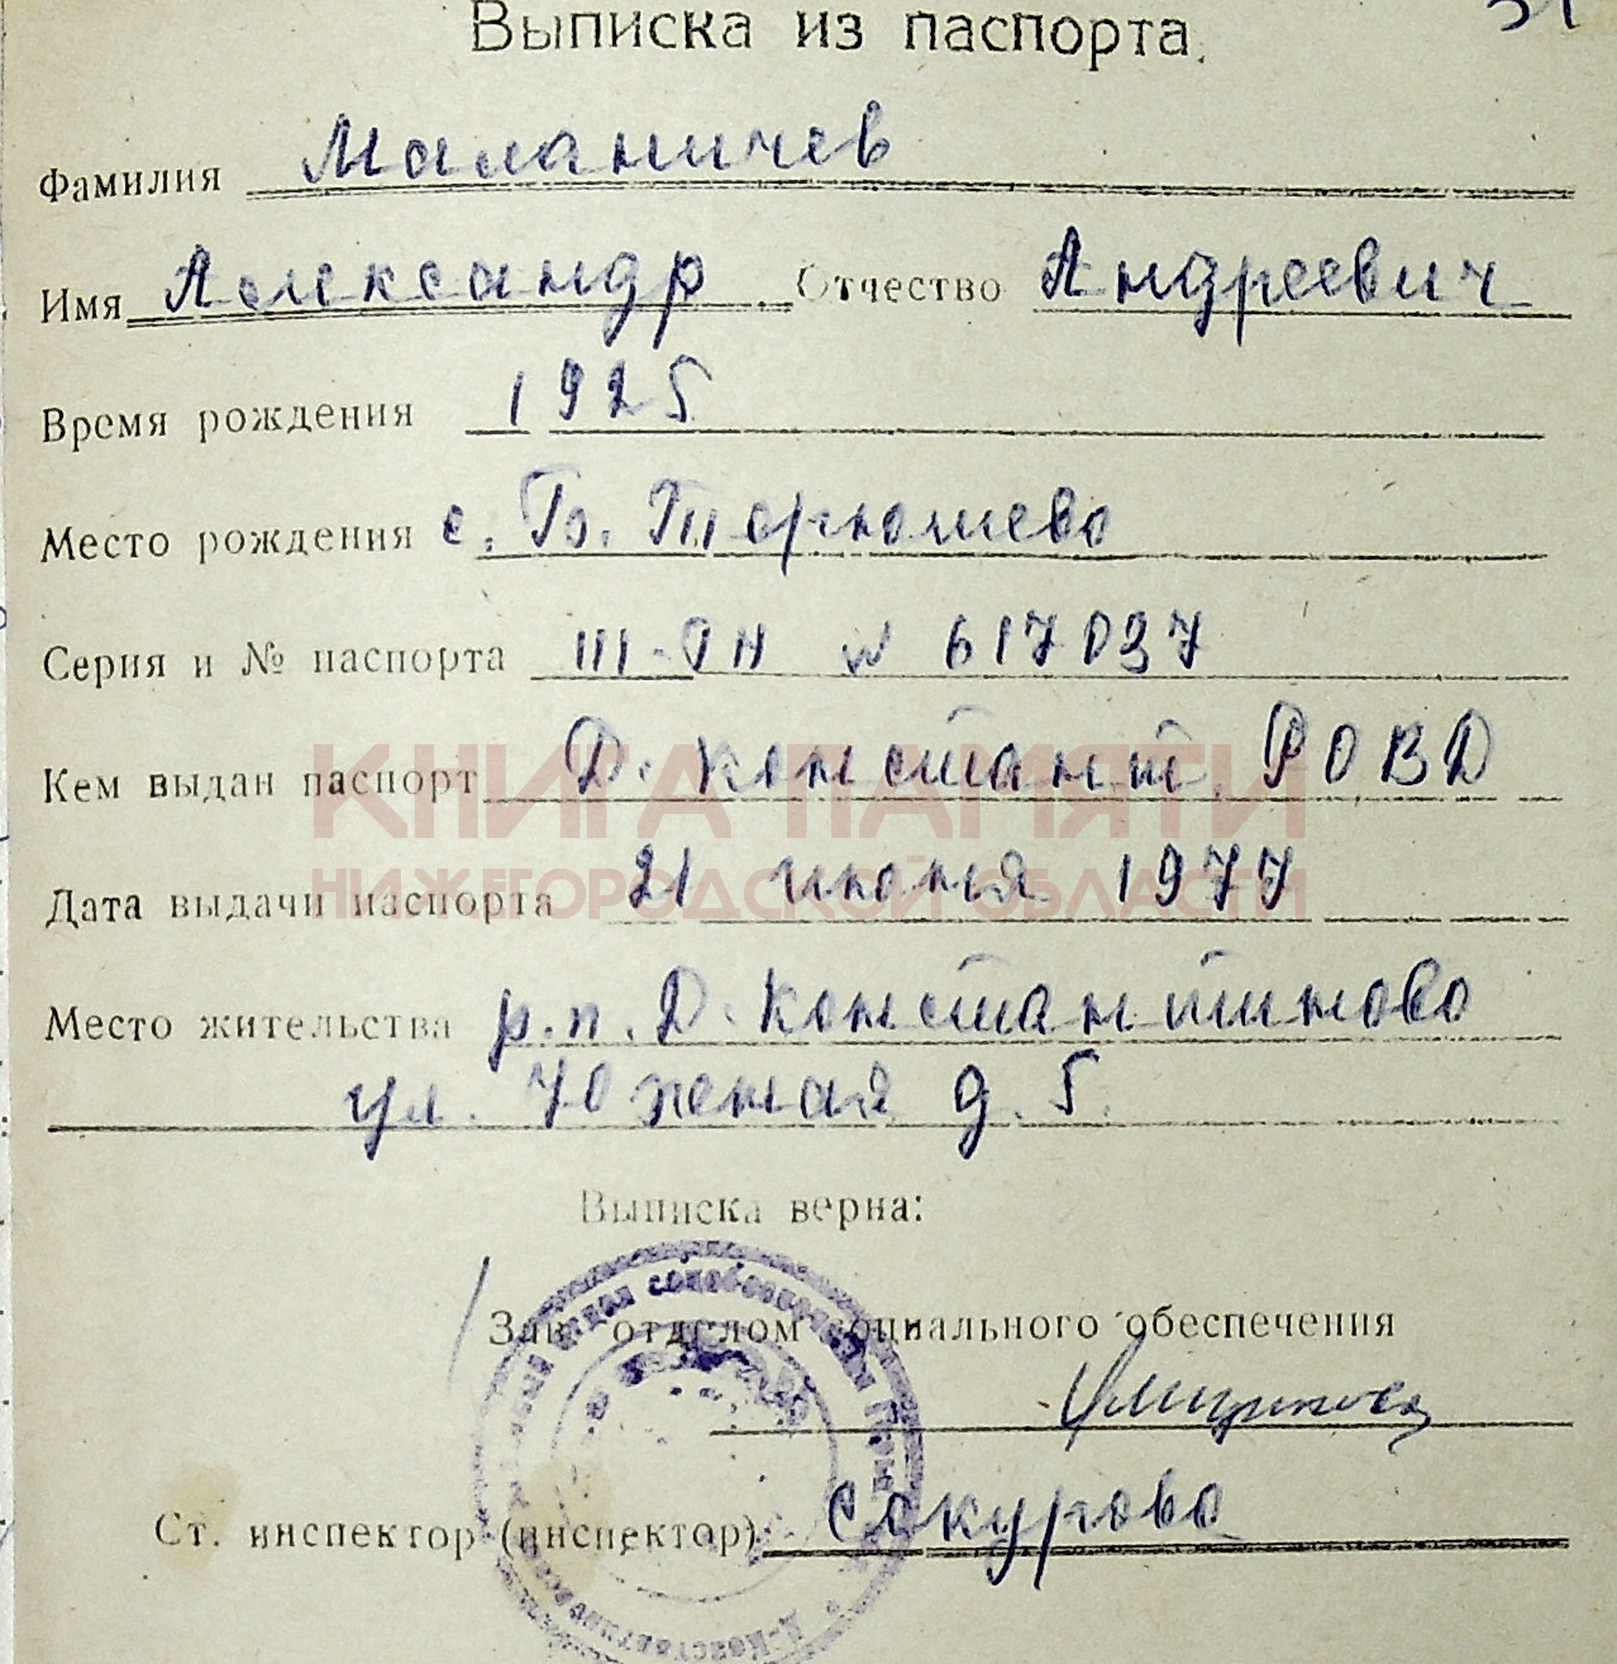 Выписка из паспорта.
Фамилия Маланичев
Имя Александр Отчество Андреевич
Время рождения 1925
Место рождения с. Б. Терюшево
Серия и № паспорта III-ТН № 617037
Кем выдан паспорт Д. Констант. РОВД
КНИГА ПАМЯТИ
Дата выдачи паспорта 21 июня 1977
НИЖЕГОРОДСКОЙ ОБЛАСТИ
Место жительства р.п. Д. Константиново
ул. Южная д. 5.
Выписка верна:
Зав. отделом социального обеспечения
Ст. инспектор (инспектор) Сокурова